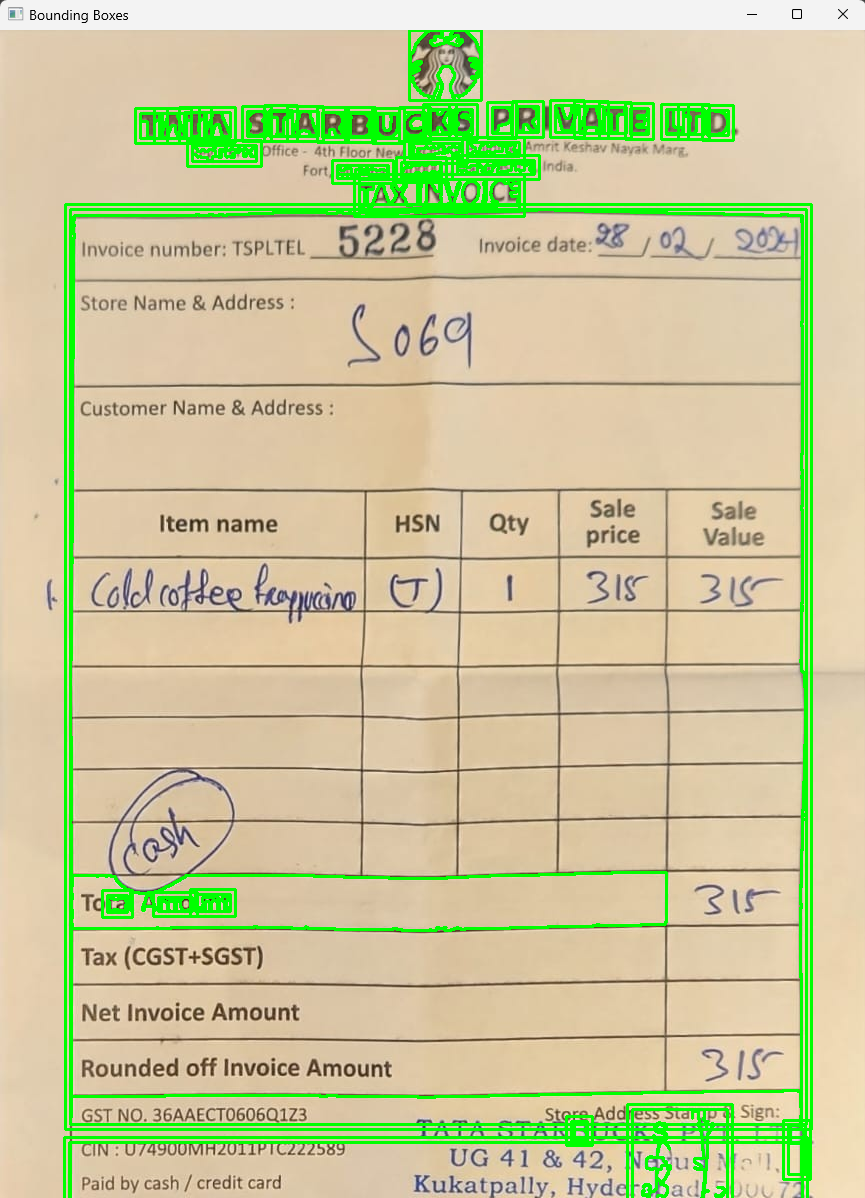 Bounding Boxes
TATA STARBUCKS PRIVATE LTD.
Office - 4th Floor New Amrit Keshav Nayak Marg,
Fort, India.
TAX INVOICE
Invoice number: TSPLTEL 5228 Invoice date: 28/02/2024
Store Name & Address :
S069
Customer Name & Address :
Item name HSN Qty Sale price Sale Value
1. Cold coffee frappuccino (T) 1 315 315
cash
Total Amount 315
Tax (CGST+SGST)
Net Invoice Amount
Rounded off Invoice Amount 315
GST NO. 36AAECT0606Q1Z3 Store Address Stamp & Sign:
TATA STARBUCKS PVT. LTD
CIN : U74900MH2011PTC222589
UG 41 & 42, Nexus Mall,
Paid by cash / credit card
Kukatpally, Hyderabad-500072